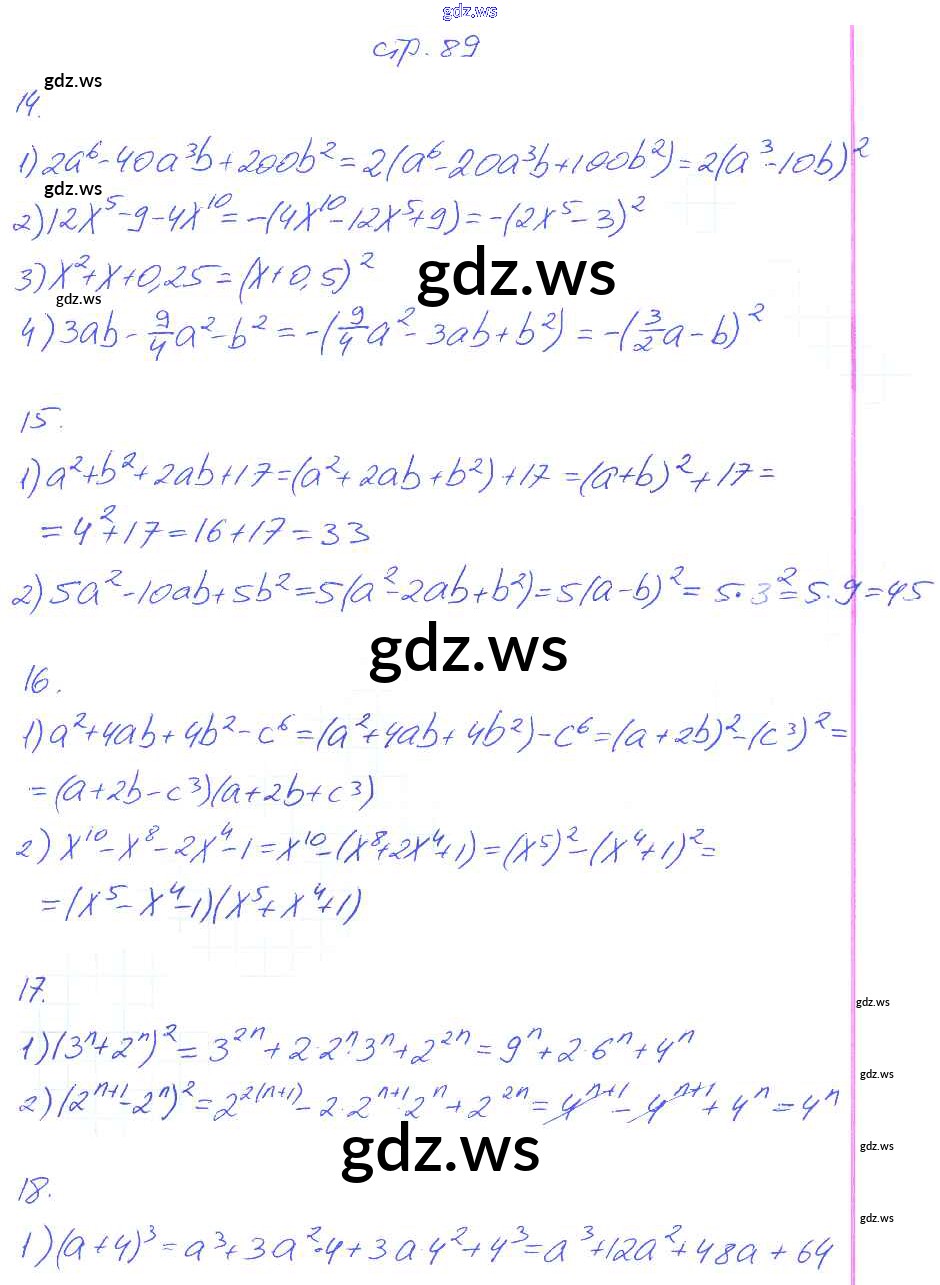 gdz.ws
стр. 89
gdz.ws
14.
1) 2a⁶-40a³b+200b²=2(a⁶-20a³b+100b²)=2(a³-10b)²
gdz.ws
2) 12x⁵-9-4x¹⁰=-(4x¹⁰-12x⁵+9)=-(2x⁵-3)²
3) x²+x+0,25=(x+0,5)²
gdz.ws
gdz.ws
4) 3ab-9/4a²-b²=-(9/4a²-3ab+b²)=-(3/2a-b)²
15.
1) a²+b²+2ab+17=(a²+2ab+b²)+17=(a+b)²+17=
=4²+17=16+17=33
2) 5a²-10ab+5b²=5(a²-2ab+b²)=5(a-b)²=5·3²=5·9=45
gdz.ws
16.
1) a²+4ab+4b²-c⁶=(a²+4ab+4b²)-c⁶=(a+2b)²-(c³)²=
=(a+2b-c³)(a+2b+c³)
2) x¹⁰-x⁸-2x⁴-1=x¹⁰-(x⁸+2x⁴+1)=(x⁵)²-(x⁴+1)²=
=(x⁵-x⁴-1)(x⁵+x⁴+1)
17.
gdz.ws
1) (3ⁿ+2ⁿ)²=3²ⁿ+2·2ⁿ·3ⁿ+2²ⁿ=9ⁿ+2·6ⁿ+4ⁿ
gdz.ws
2) (2ⁿ⁺¹-2ⁿ)²=2²⁽ⁿ⁺¹⁾-2·2ⁿ⁺¹·2ⁿ+2²ⁿ=4ⁿ⁺¹-4ⁿ⁺¹+4ⁿ=4ⁿ
gdz.ws
gdz.ws
18.
gdz.ws
1) (a+4)³=a³+3a²·4+3a·4²+4³=a³+12a²+48a+64